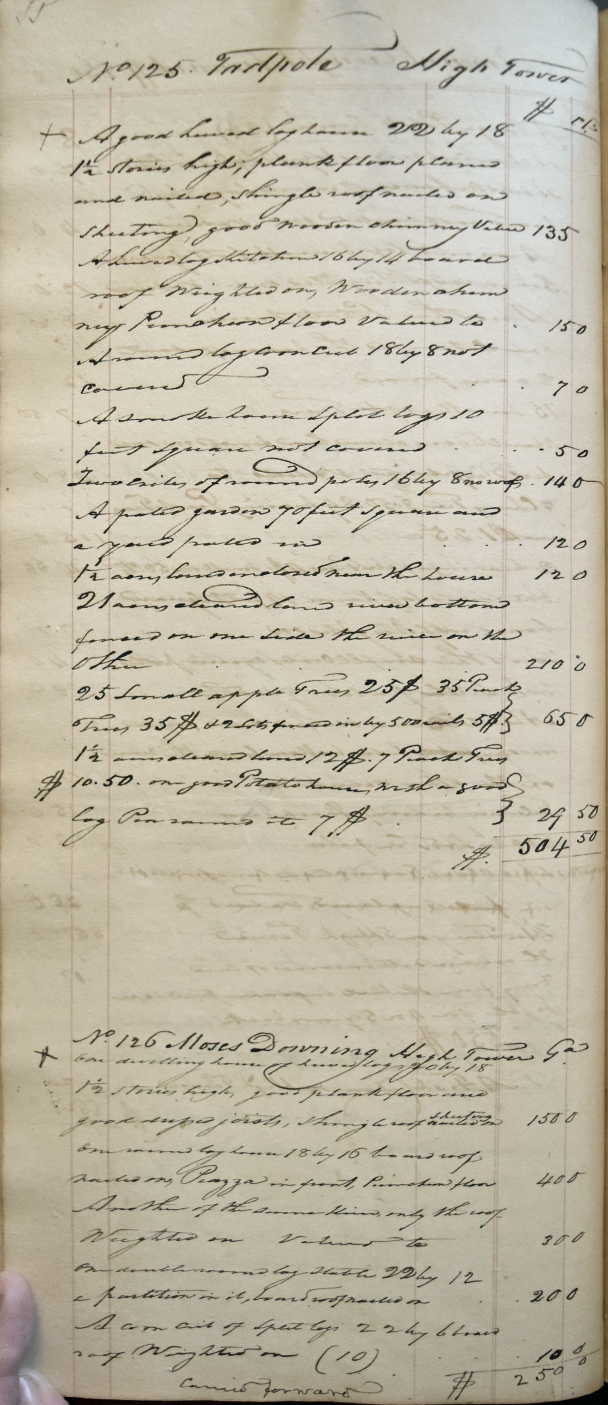 No 125. Tadpole High Tower
$ cts
A good hewed log house 22 by 18
1½ stories high; plank floor planed
and nailed, shingle roof nailed on
sheeting, good wooden chimney Value 135
A hewed log Kitchen 16 by 14 board
roof Weighted on, Wooden chim
ney Puncheon floor Valued to 15 0
A round log corn crib 18 by 8 not
covered 7 0
A smoke house split logs 10
feet square not covered 5 0
Two cribs of round poles 16 by 8 no roof 14 0
A paled garden 70 feet square and
a yard paled in 12 0
1½ acres land enclosed near the house 12 0
21 acres cleared land river bottom
fenced on one side the river on the
Other 210 0
25 Small apple Trees 25$ 35 Peach
Trees 35$ & 2 Lots fenced in by 500 rails 5$ 65 0
1½ acres cleared land 12$. 7 Peach Trees
$ 10.50. on good Potato house with a good
log Pen around it 7$ 29 50
$. 504 50
No. 126 Moses Downing High Tower Ga
One dwelling house of hewed logs 20 by 18
1½ stories high, good plank floor and
good joists, shingle roof sheeting nailed on 150 0
One round log house 18 by 16 board roof
nailed on, Piazza in front, Puncheon floor 40 0
Another of the same kind only the roof
Weighted on Valued to 30 0
One double round log stable 22 by 12
a partition in it, board roof nailed on 20 0
A corn crib of split logs 22 by 6 board
roof Weighted on (10) 10 0
Carried forward $ 250 0